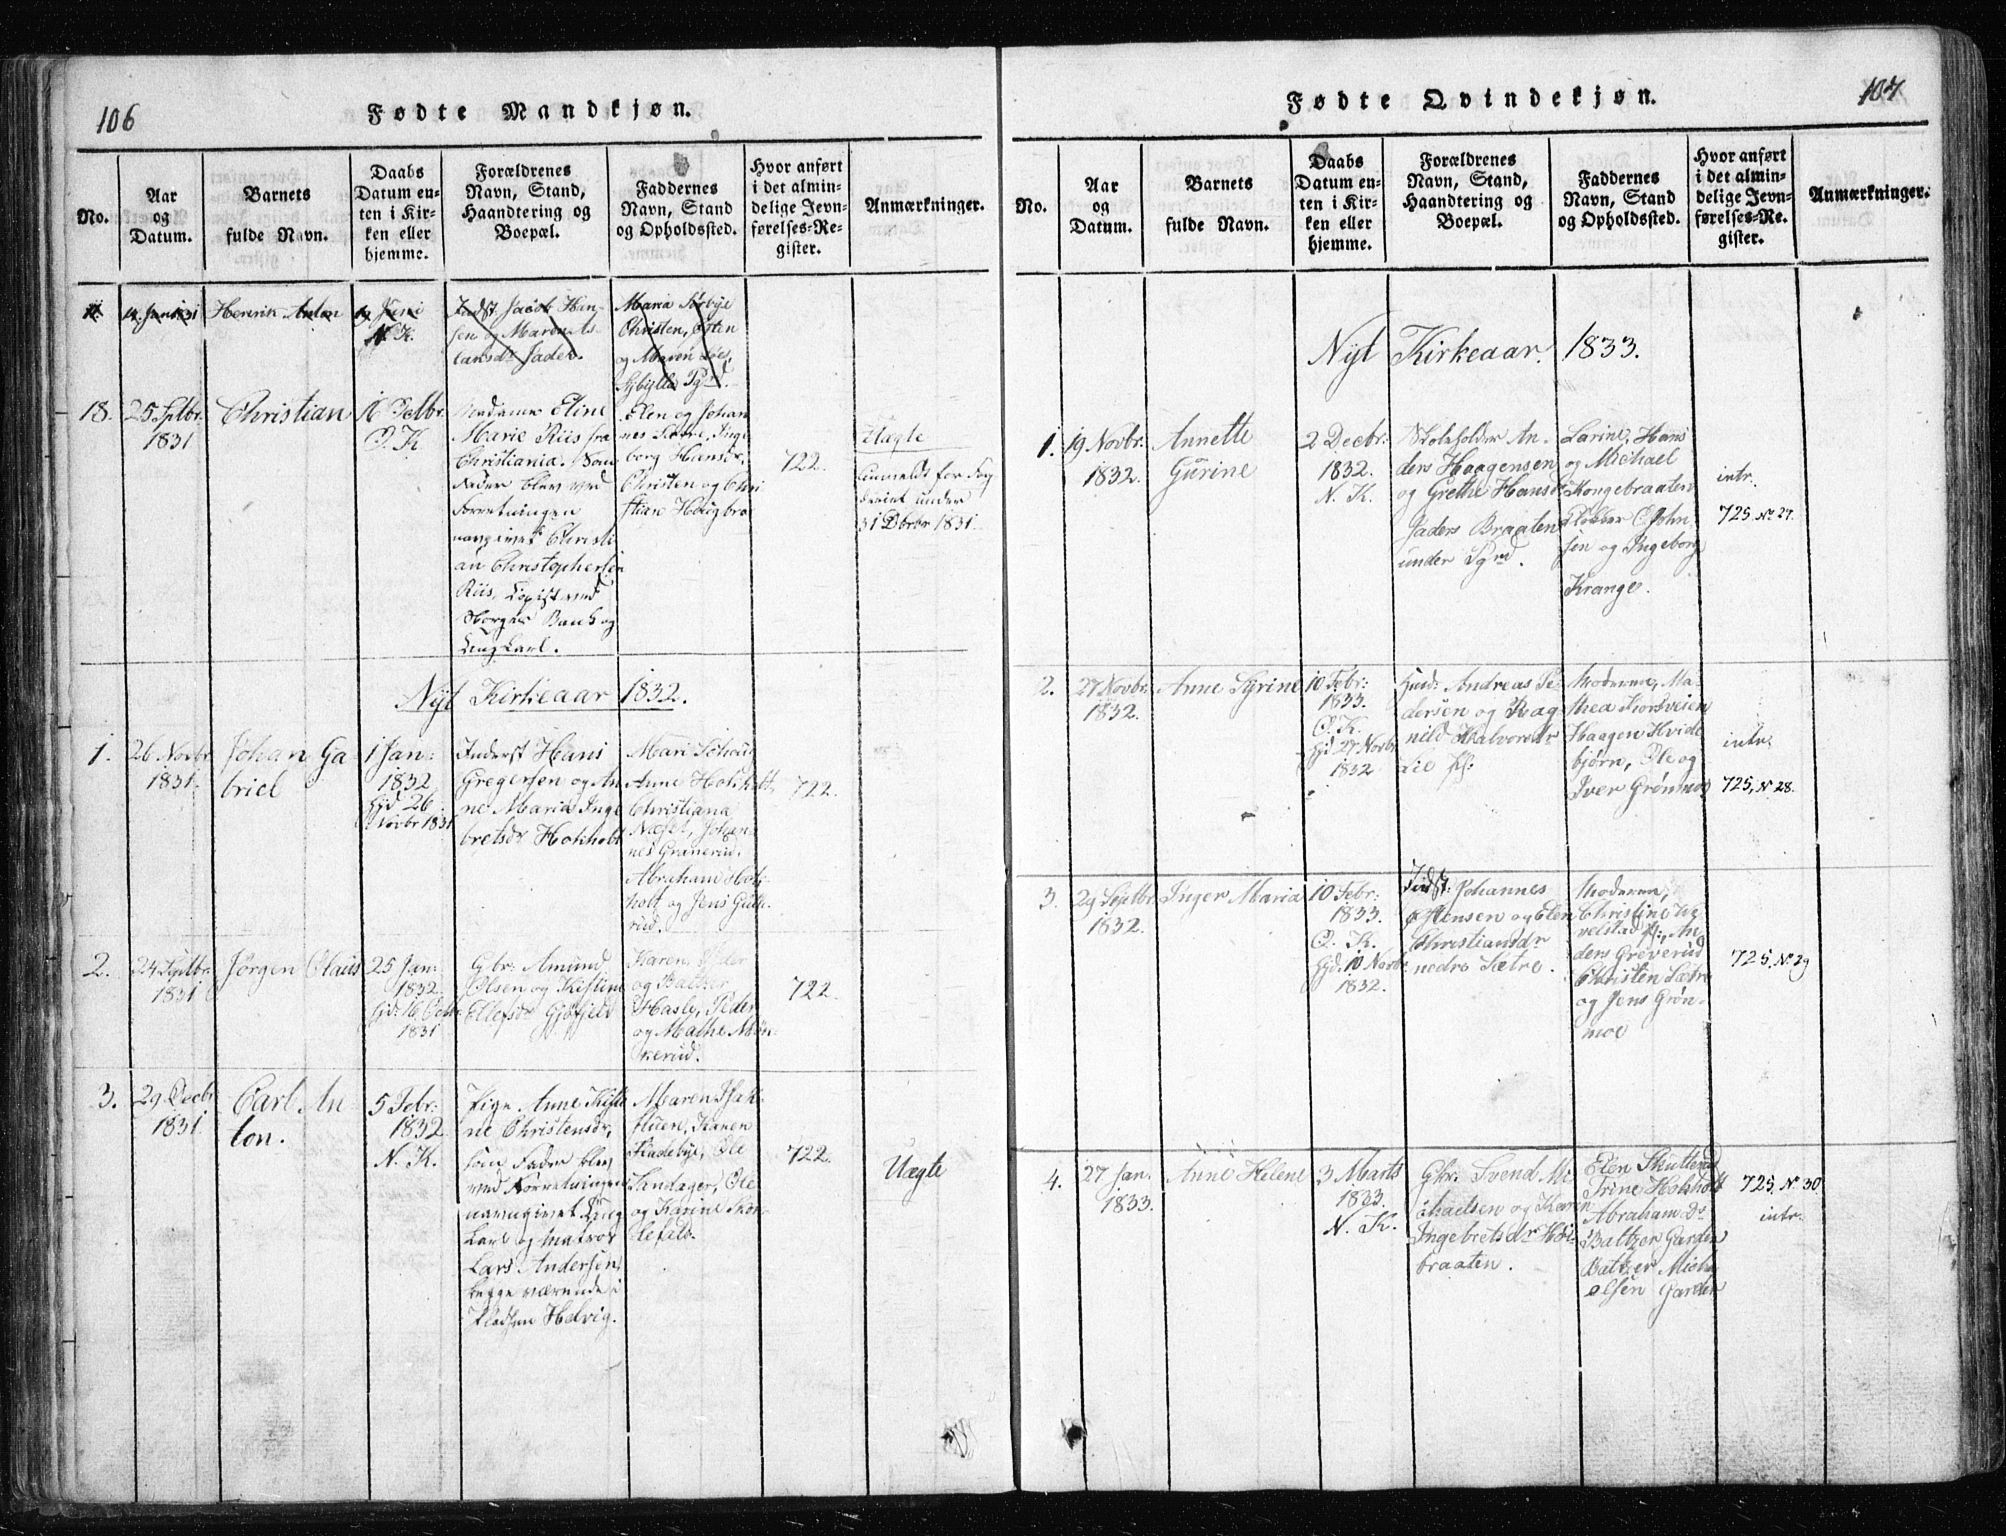 106
Fødte Mandkjøn.
No.
Aar
og
Datum.
Barnets
fulde Navn.
Daabs
Datum en-
ten i Kir-
ken eller
hjemme.
Forældrenes
Navn, Stand,
Haandtering og
Boepæl.
Faddernes
Navn, Stand
og Opholdssted.
Hvor anført
i det almin-
delige Jevn-
førelses-Re-
gister.
Anmærkninger.
Henrik Anton
Juni
N. K.
Indst Jacob Han-
sen og Maren
Jader.
Maria Sørbye
Christen, Østen
og Maren
18.
25 Septbr.
1831
Christian
16 Octbr.
O. K.
Madame Eline
Marie Riis fra
Christiania. Som
Fader blev ved
Forretningen
navngivet Christi-
an Christophersen
Riis, Copist ved
Norges Bank og
Ungkarl.
Elen og Johan-
nes Sætre, Inge-
borg Hansdr,
Christen og Chri-
stian Haugbro
722.
Uægte
Anmeldt for Fog-
deriet under
31 Dcbr 1831.
Nyt Kirkeaar 1832.
1.
26 Novbr
1831.
Johan Ga-
briel
1 Jan:
1832
Hjd 26
Novbr 1831
Inderst Hans
Gregersen og An-
ne Maria Inge-
bretsdr Hokholt
Mari
Anne Hokholt,
Christiana
Næset, Johan-
nes Granerud,
Abraham Hok-
holt og Jens Gulk-
rud.
722.
2.
24 Septbr.
1831
Jørgen Olaus
25 Jan:
1832.
Hjd: 16 Octbr
1831
Gbr: Amund
Olsen og Kistine
Ellefsdr Gjøfjeld
Karen, Peder
og Balzer
Hasle, Peder
og Mathe Møn-
kerud.
722.
3.
29 Decbr
1831
Carl An-
ton.
5 Febr:
1832
N. K.
Pige Anne Kisti-
ne Christensdr,
som Fader blev
ved Forretningen
navngivet Ung-
karl og Matros
Lars Andersen,
begge værende i
Pladsen Helvig.
Maren
Karen
Ole
Sandager, Ole
og Karine
722.
Uægte
107
Fødte Qvindekjøn.
No.
Aar
og
Datum.
Barnets
fulde Navn.
Daabs
Datum en-
ten i Kir-
ken eller
hjemme.
Forældrenes
Navn, Stand,
Haandtering og
Boepæl.
Faddernes
Navn, Stand
og Opholdssted.
Hvor anført
i det almin-
delige Jevn-
førelses-Re-
gister.
Anmærkninger.
Nyt Kirkeaar. 1833.
1.
19 Novbr.
1832.
Annette
Gurine
2 Decbr:
1832.
N. K.
Skoleholder An-
ders Haagensen
og Grethe Hansdr
Jaders Braaten
under Pgrd.
Larine, Hans
og Michael
Kongebraaten,
Klokker C. John-
sen og Ingeborg
Krange.
intr.
725. No 27.
2.
27 Novbr:
1832.
Anne Syrine
10 Febr:
1833.
O. K.
Hjd 27 Novbr
1832
Andreas Pe-
dersen og Rag-
nild Halvorsdr
Moderen, Ma-
thea Torsveien
Haagen Hvide-
bjørn, Ole og
Iver Grønmo
intr.
725, No 28.
3.
29 Septbr.
1832.
Inger Maria
10 Febr:
1833.
O. K.
Hjd. 10 Novbr
1832.
Indst: Johannes
Østensen og Elen
Christiansdr
nedre Sætre.
Moderen,
Christine
An-
ders Greverud
Christen Sætre
og Jens Grøn-
moe
725, No 29
4.
27 Jan.
1833.
Anne Helene
3 Marts
1833.
N. K.
Gbr. Svend Mi-
chaelsen og Karen
Ingebretsdr Høi-
braaten.
Elen Skutterud
Trine Hokholt
Abraham Do
Baltzer Garder
Baltzer Mich-
elsen Garder
725. No 30
intr.